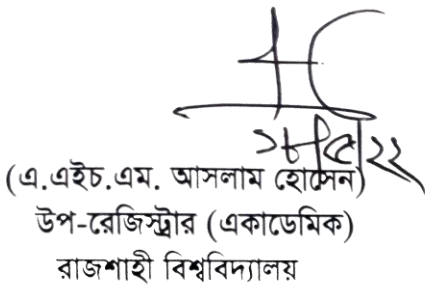 ১৮/৫/২২
(এ.এইচ.এম. আসলাম হোসেন)
উপ-রেজিস্ট্রার (একাডেমিক)
রাজশাহী বিশ্ববিদ্যালয়